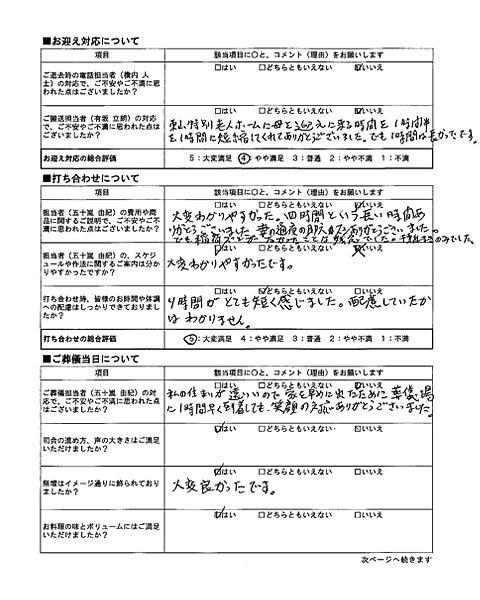 ■お迎え対応について
項目 該当項目に○と、コメント（理由）をお願いします
ご逝去時の電話担当者（横内 人
士）の対応で、ご不安やご不満に思
われた点はございましたか？
□はい □どちらともいえない ☑いいえ
ご搬送担当者（有坂 立朗）の対応
で、ご不安やご不満に思われた点は
ございましたか？
□はい □どちらともいえない ☑いいえ
特別老人ホームに母を迎えに来る時間を1時間半
を1時間に短縮してくれてありがとうございました。でも1時間は長かったです。
お迎え対応の総合評価 5：大変満足 ④やや満足 3：普通 2：やや不満 1：不満
■打ち合わせについて
項目 該当項目に○と、コメント（理由）をお願いします
担当者（五十嵐 由紀）の費用や商
品に関するご説明で、ご不安やご不
満に思われた点はございましたか？
□はい □どちらともいえない ☑いいえ
大変わかりやすかった。四時間という長い時間あ
りがとうございました。
担当者（五十嵐 由紀）の、スケジ
ュールや作法に関するご案内は分か
りやすかったですか？
☑はい □どちらともいえない
大変わかりやすかったです。
打ち合わせ時、皆様のお時間や体調
への配慮はしっかりできておりまし
たか？
□はい ☑どちらともいえない □いいえ
4時間がとても短く感じました。配慮していたか
はわかりません。
打ち合わせの総合評価 ⑤：大変満足 4：やや満足 3：普通 2：やや不満 1：不満
■ご葬儀当日について
項目 該当項目に○と、コメント（理由）をお願いします
ご葬儀担当者（五十嵐 由紀）の対
応で、ご不安やご不満に思われた点
はございましたか？
□はい □どちらともいえない ☑いいえ
私の住まいが遠いので家を早めに出たために葬儀場
に1時間早く到着しても、笑顔の対応ありがとうございました。
司会の進め方、声の大きさはご満足
いただけましたか？
☑はい □どちらともいえない □いいえ
祭壇はイメージ通りに飾られており
ましたか？
☑はい □どちらともいえない □いいえ
大変良かったです。
お料理の味とボリュームにはご満足
いただけましたか？
☑はい □どちらともいえない □いいえ
次ページへ続きます